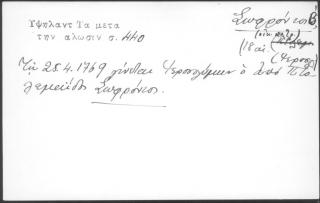 Υψηλαντ Τα μετα
την αλωσιν σ. 440
Σωφρόνιος Β
(οικ. πατρ.)
(18 αι.
(Ιεροσ.)
Τῇ 28.4.1769 γίνεται Ἱεροσολύμων ὁ ἀπὸ Πτο
λεμαΐδος Σωφρόνιος.